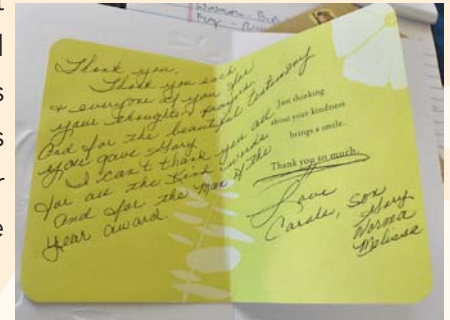 Thank you,
Thank you each
& everyone of you for
your thoughts & prayers
And for the beautiful testimony
you gave Gary.
I can't thank you all
for all the kind words
And for the Man of the
year award
Just thinking
about your kindness
brings a smile.
Thank you so much.
Love
Carole, Son
Gary
Norma
Melissa